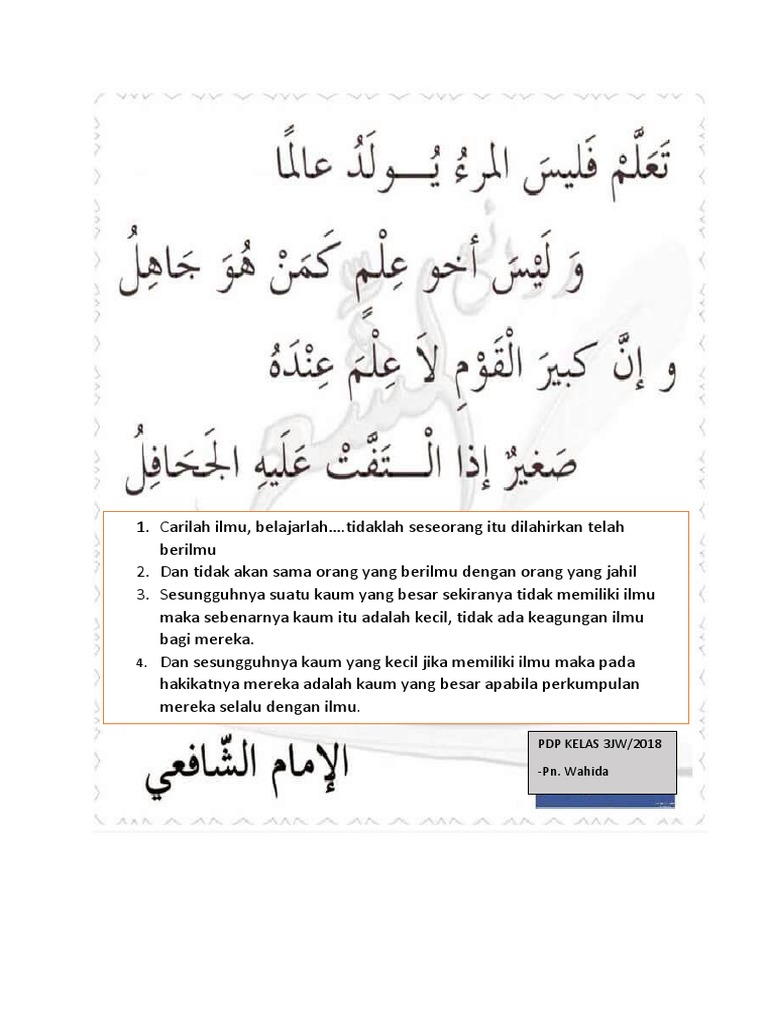 تَعَلَّمْ فَليسَ المرءُ يُـــولَدُ عالمًا
وَ لَيْسَ أخو عِلْمٍ كَمَنْ هُوَ جَاهِلُ
و إنَّ كبيرَ الْقَوْمِ لاَ عِلْمَ عِنْدَهُ
صَغيرٌ إذا الْـــتَفَّتْ عَلَيهِ الجَحَافِلُ
1. Carilah ilmu, belajarlah....tidaklah seseorang itu dilahirkan telah
berilmu
2. Dan tidak akan sama orang yang berilmu dengan orang yang jahil
3. Sesungguhnya suatu kaum yang besar sekiranya tidak memiliki ilmu
maka sebenarnya kaum itu adalah kecil, tidak ada keagungan ilmu
bagi mereka.
4. Dan sesungguhnya kaum yang kecil jika memiliki ilmu maka pada
hakikatnya mereka adalah kaum yang besar apabila perkumpulan
mereka selalu dengan ilmu.
الإمام الشّافعي
PDP KELAS 3JW/2018
-Pn. Wahida